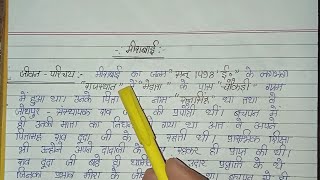 -: मीराबाई :-
जीवन - परिचय :- मीराबाई का जन्म "सन् 1498 ई०" के लगभग
"राजस्थान" में "मेड़ता" के पास "चौकड़ी" ग्राम
में हुआ था। उनके पिता नाम रत्नसिंह था तथा वे
जोधपुर संस्थापक राव की प्रपौत्री थीं। बचपन में
ही उनकी माता का निधन गया था अतः वे अपने
राव दूदा जी के रहती थीं। प्रारम्भिक शिक्षा
भी उन्होंने अपने दादाजी के रहकर ही प्राप्त की थी।
राव दूदा जी बड़े ही धार्मिक उदार प्रवृत्ति के थे
जिनका प्रभाव मीरा के